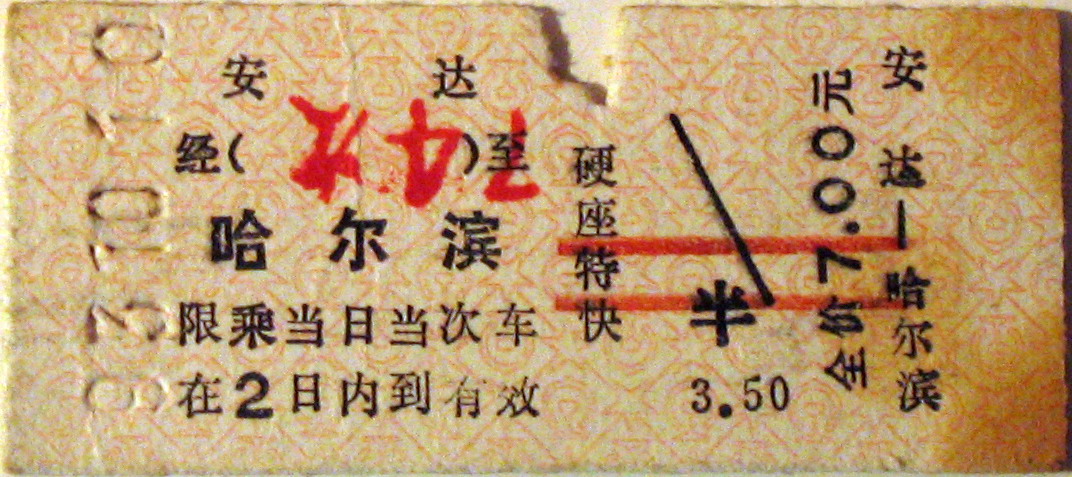 安 达
经( )至
哈 尔 滨
限乘当日当次车
在2日内到有效
硬座特快
半
3.50
全价7.00元
安达—哈尔滨